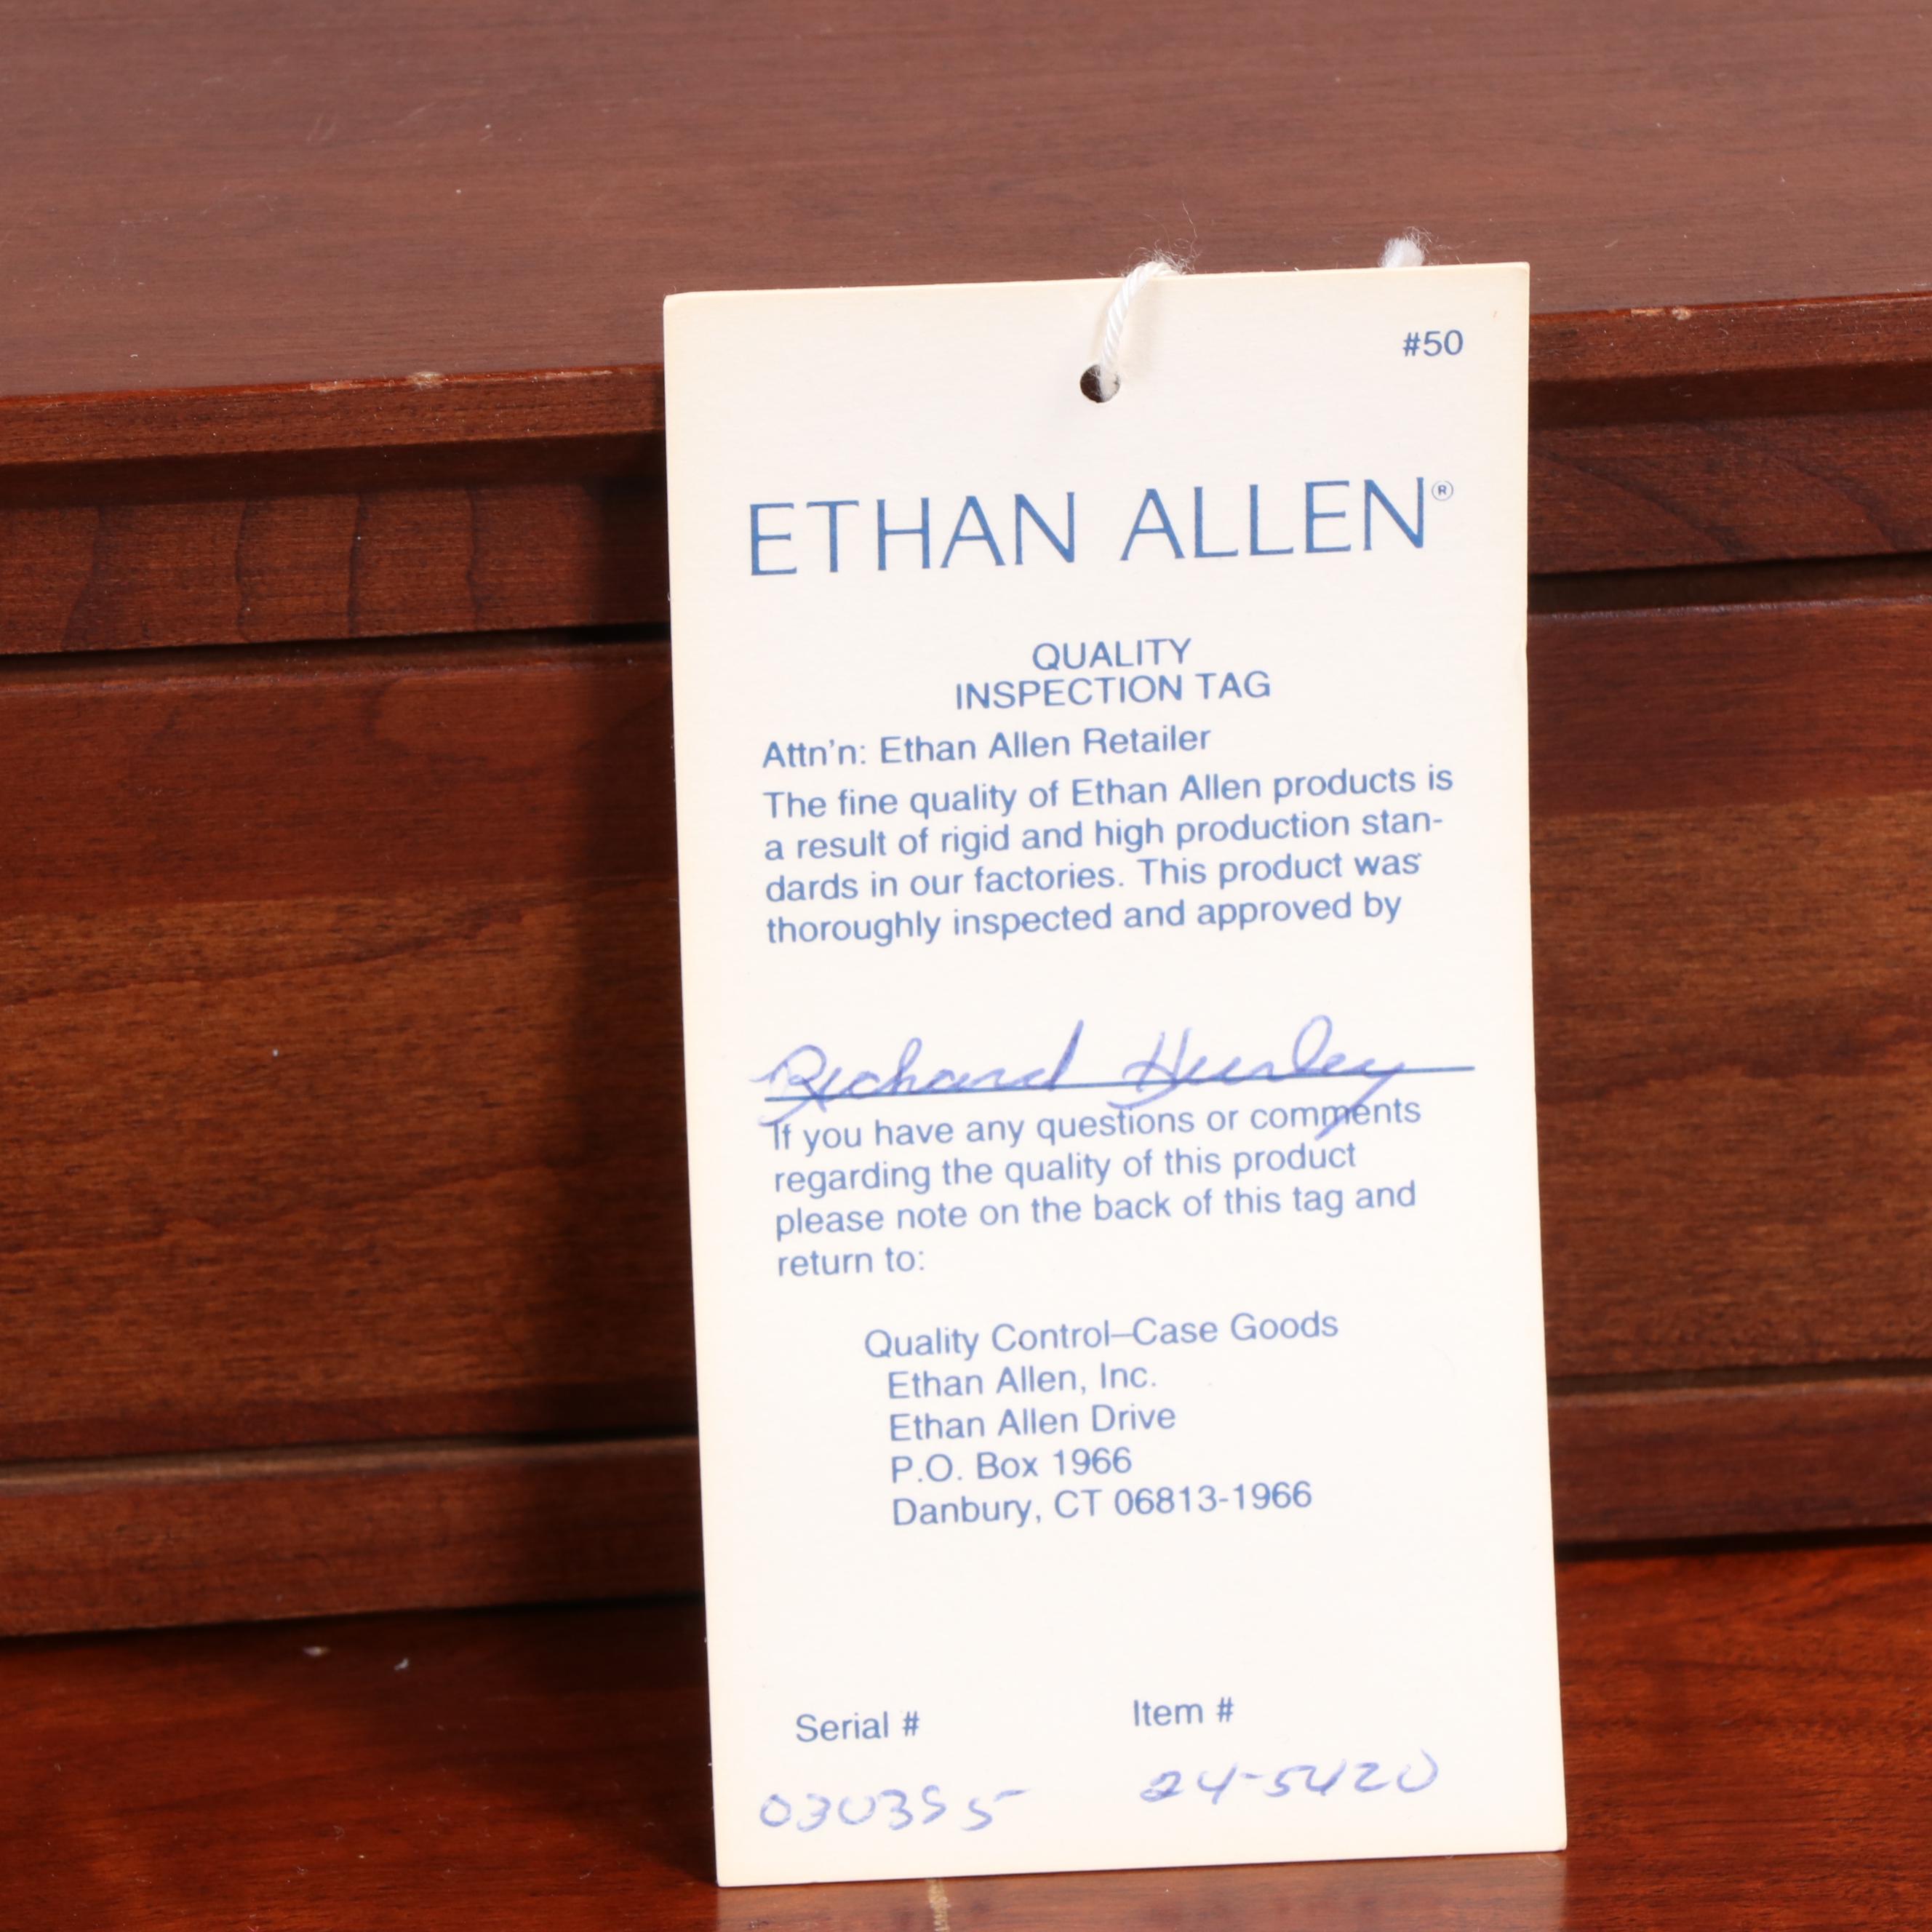 #50
ETHAN ALLEN®
QUALITY
INSPECTION TAG
Attn'n: Ethan Allen Retailer
The fine quality of Ethan Allen products is
a result of rigid and high production stan-
dards in our factories. This product was
thoroughly inspected and approved by
Richard Hurley
If you have any questions or comments
regarding the quality of this product
please note on the back of this tag and
return to:
Quality Control–Case Goods
Ethan Allen, Inc.
Ethan Allen Drive
P.O. Box 1966
Danbury, CT 06813-1966
Serial # Item #
030395 24-5420